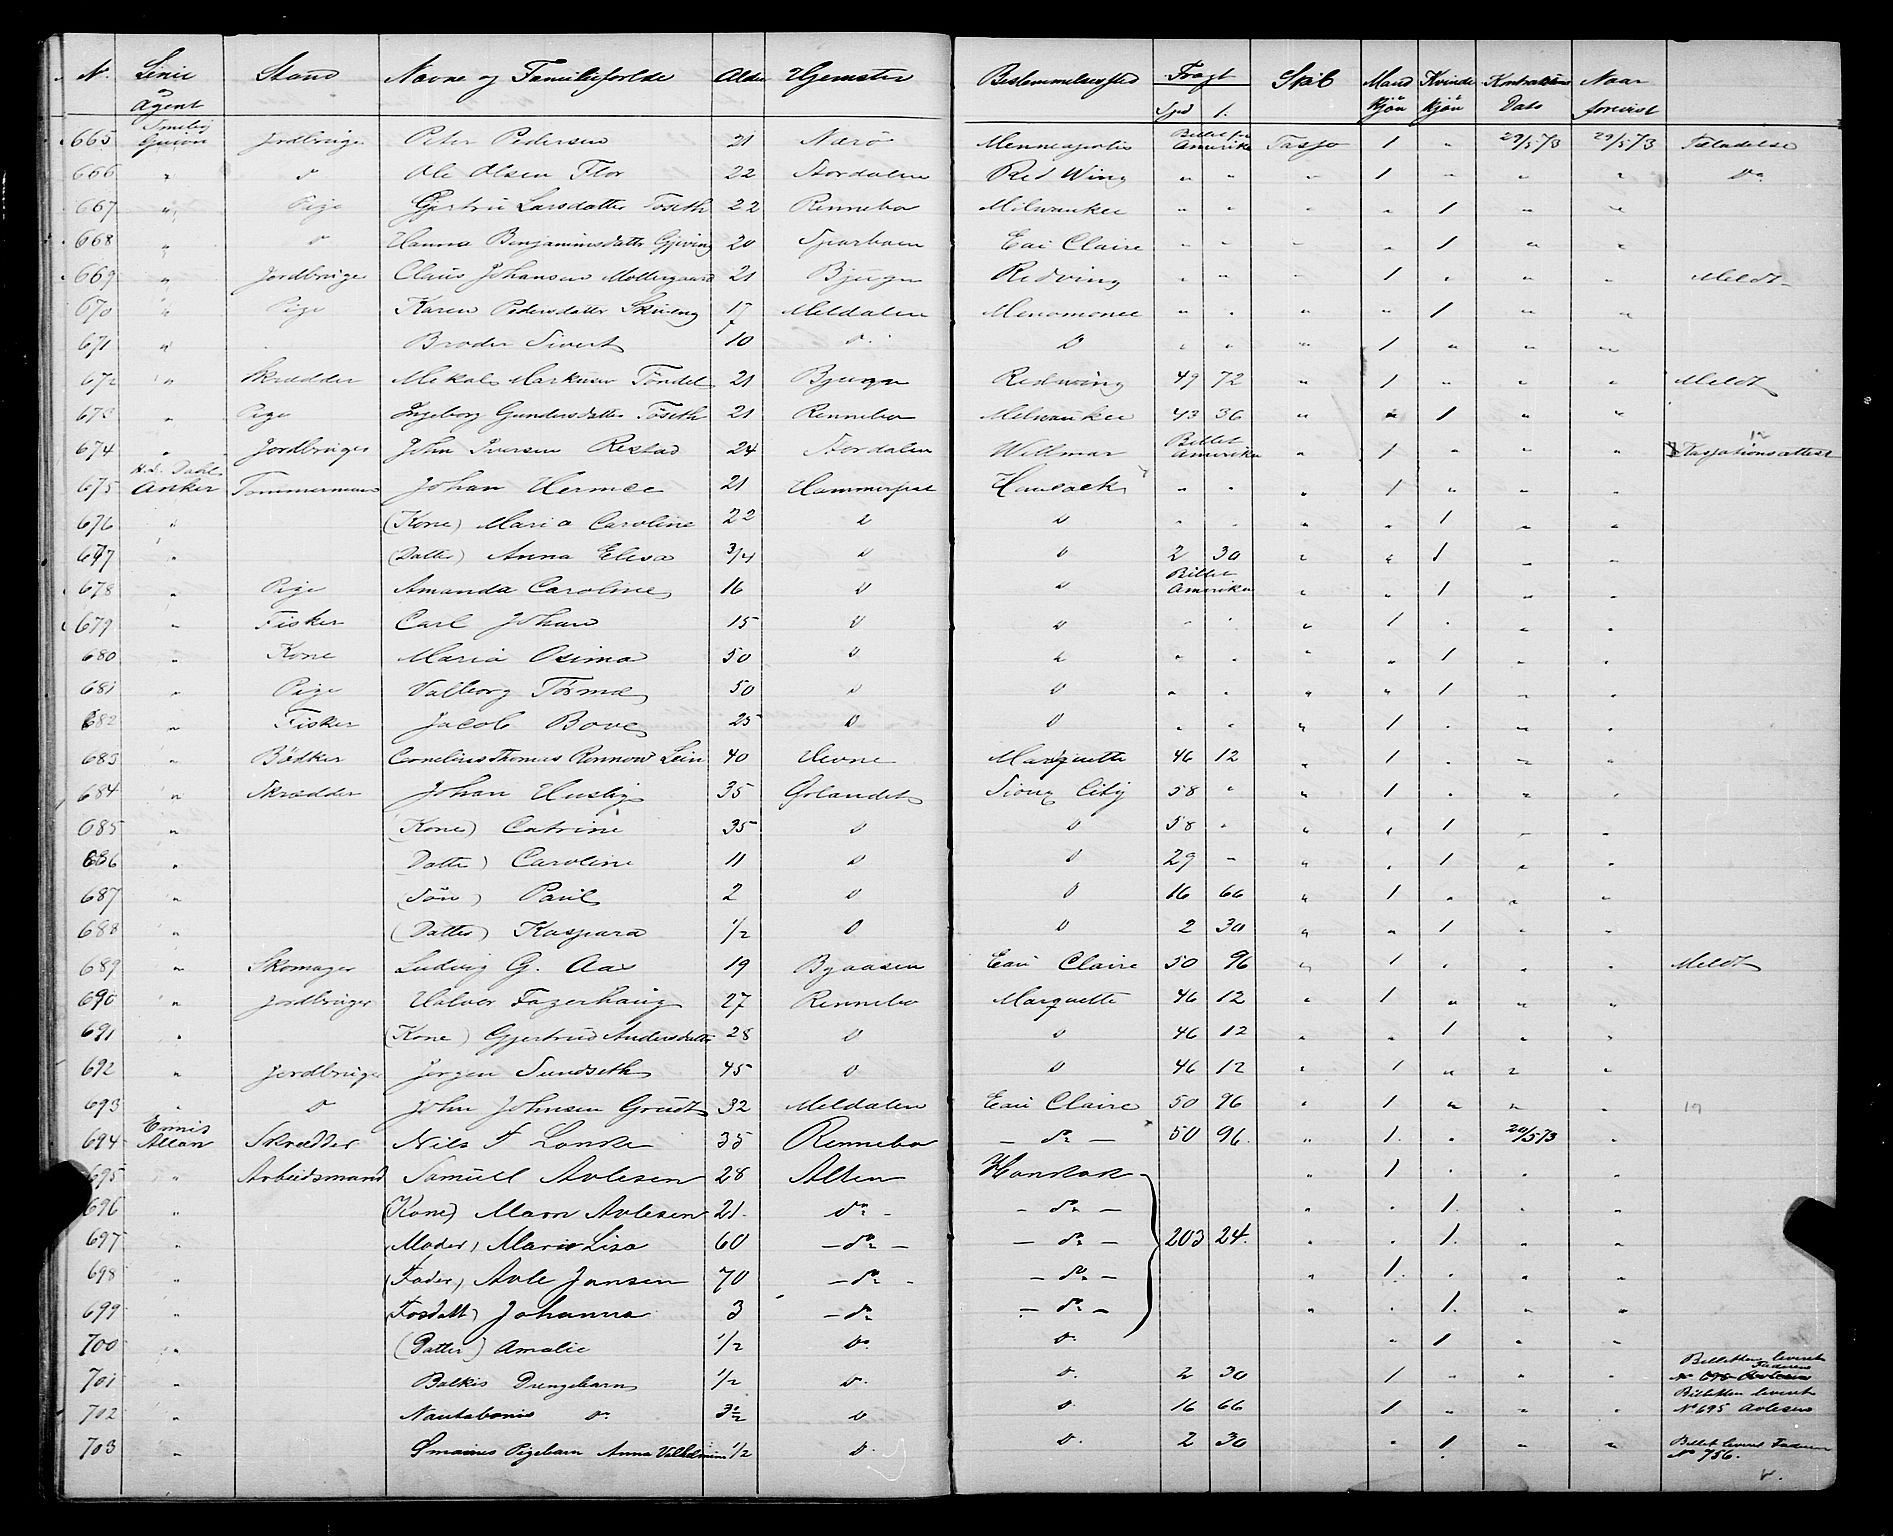 N. Linie & Agent Stand Navne og Familieforhde Alder Hjemster Bestemmelsessted Fragt Spd 1. Skib Mand kjön Kvinde kjön Kontraktens Dato Naar forevist
665 Guion Jordbruger Peter Pedersen 21 Nærö Menneapolis Billet fra Amerika Tasso 1 " 29/5 73 29/5 73 Tiladelse
666 " D Ole Olsen Flor 22 Stordalen Red Wing " " " 1 " " " Do
667 " Pige Gjertru Larsdatter Foseth 22 Rennebo Milwaukee " " " " 1 " "
668 " D Hanna Benjaminsdatter Gjeving 20 Sparboen Eau Claire " " " " 1 " "
669 " Jordbruger Claus Johansen Mollergaard 21 Bjugn Redwing " " " 1 " " " Meldt
670 " Pige Karen Pedersdatter Skjeeng 17 Meldalen Menomonee " " " " 1 " "
671 " Broder Sivert 10 D. D " " " 1 " " "
672 " Skrædder Mekal Markusen Töndel 21 Bjugn Redwing 49 72 " 1 " " " Meldt
673 " Pige Ingeborg Gundersdatter Foseth 21 Rennebo Milwaukee 43 36 " " 1 " "
674 " Jordbruger John Iversen Restad 24 Stordalen Willmar Billet Amerika " 1 " " "
675 H. L. Dahl Anker Tömmermand Johan Hermee 21 Hammerfest Hancock " " " 1 " " "
676 " (Kone) Maria Caroline 22 D D " " " " 1 " "
677 " (Datter) Anna Elesa 3/4 D D 2 30 " " 1 " "
678 " Pige Amanda Caroline 16 D D Billet Amerika " " 1 " "
679 " Fisker Carl Johan 15 D D " " " 1 " " "
680 " Kone Maria Osima 50 D D " " " " 1 " "
681 " Pige Valborg 50 D D " " " " 1 " "
682 " Fisker Jacob Bove 25 D D " " " 1 " " "
683 " Bödker Cornelius Thomas Rönnow Lein 40 Hevne Marquette 46 12 " 1 " " "
684 " Skrædder Johan Husby 35 Örlandet Sioux City 58 " " 1 " " "
685 " (Kone) Catrine 35 D D 58 " " " 1 " "
686 " Datter) Caroline 11 D D 29 " " " 1 " "
687 " (Sön) Paul 2 D D 16 66 " 1 " " "
688 " (Datter) Kaspara 1/2 D D 2 30 " " 1 " "
689 " Skomager Ludvig G. Aas 19 Byaasen Eau Claire 50 96 " 1 " " " Meldt
690 " Jordbruger Halvor Fagerhaug 27 Rennebo Marquette 46 12 " 1 " " "
691 " (Kone) Gjertrud Andersdatter 28 D D 46 12 " " 1 " "
692 " Jordbruger Jörgen Sundseth 45 D D 46 12 " 1 " " "
693 " D John Johnsen Grudt 32 Meldalen Eau Claire 50 96 " 1 " " " 19
694 Ennis Allan Skrædder Nils F Lonke 35 Rennebo – do – 50 96. " 1. " 20/5 73 "
695 " Arbeidsmand Samuel Avlesen 28 Alten Hankok " 1 " " "
696 " (Kone) Marn Avlesen 21. do – – do – " " 1. " "
697 " (Moder) Maria Lisa 60 – do – – do – 203 24. " " 1. " "
698 " (Fader) Avle Jansen 70 – do – – do – " 1. " " "
699 " Johanna 3 – do – do – " " 1. " "
700 " (Datter) Amalie 1/2 Do D. " 1 " "
701 " Balkis Drengebarn 1/2 D. D. 2 30 1 " " " Billetten leveret Faderen
702 " Nautabonis Do 3 1/2 D D. 16 66 1 " " " Billetten leveret No 695 Avlesen
703 " Pigebarn Anna 1/2 D. D. 2 30 " 1 " " Billet leveret Faderen No 756.